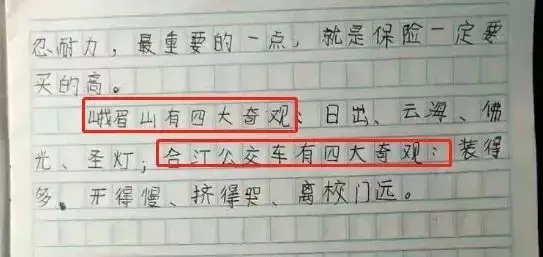 忍耐力，最重要的一点，就是保险一定要
买的高。
峨眉山有四大奇观：日出、云海、佛
光、圣灯；合江公交车有四大奇观：装得
多。开得慢、挤得哭、离校门远。